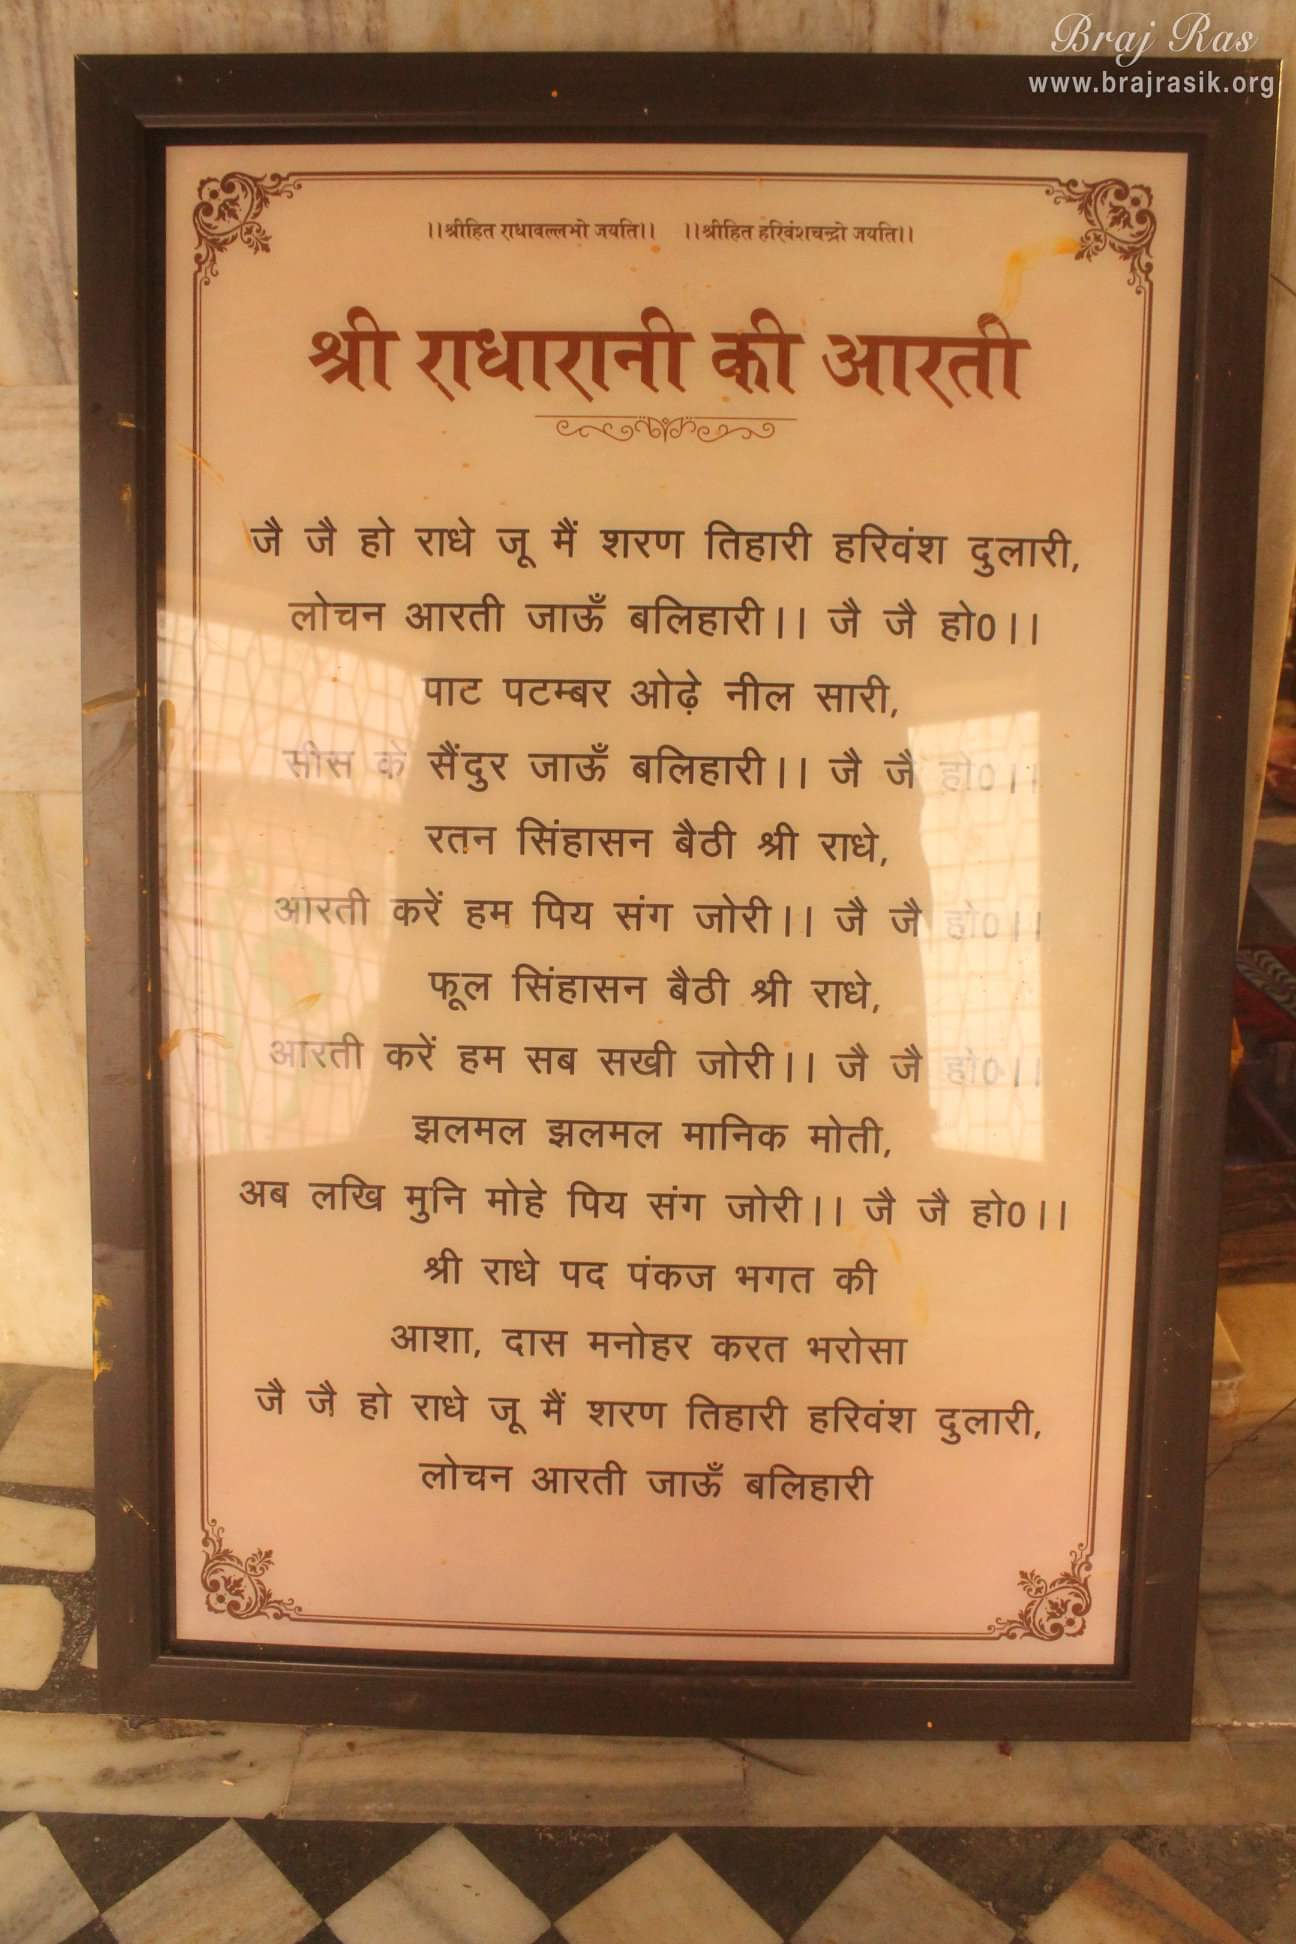 Braj Ras
www.brajrasik.org
।।श्रीहित राधावल्लभो जयति।। ।।श्रीहित हरिवंशचन्द्रो जयति।।
श्री राधारानी की आरती
जै जै हो राधे जू मैं शरण तिहारी हरिवंश दुलारी,
लोचन आरती जाऊँ बलिहारी।। जै जै हो0।।
पाट पटम्बर ओढ़े नील सारी,
सीस के सैंदुर जाऊँ बलिहारी।। जै जै हो0।।
रतन सिंहासन बैठी श्री राधे,
आरती करें हम पिय संग जोरी।। जै जै हो0।।
फूल सिंहासन बैठी श्री राधे,
आरती करें हम सब सखी जोरी।। जै जै हो0।।
झलमल झलमल मानिक मोती,
अब लखि मुनि मोहे पिय संग जोरी।। जै जै हो0।।
श्री राधे पद पंकज भगत की
आशा, दास मनोहर करत भरोसा
जै जै हो राधे जू मैं शरण तिहारी हरिवंश दुलारी,
लोचन आरती जाऊँ बलिहारी